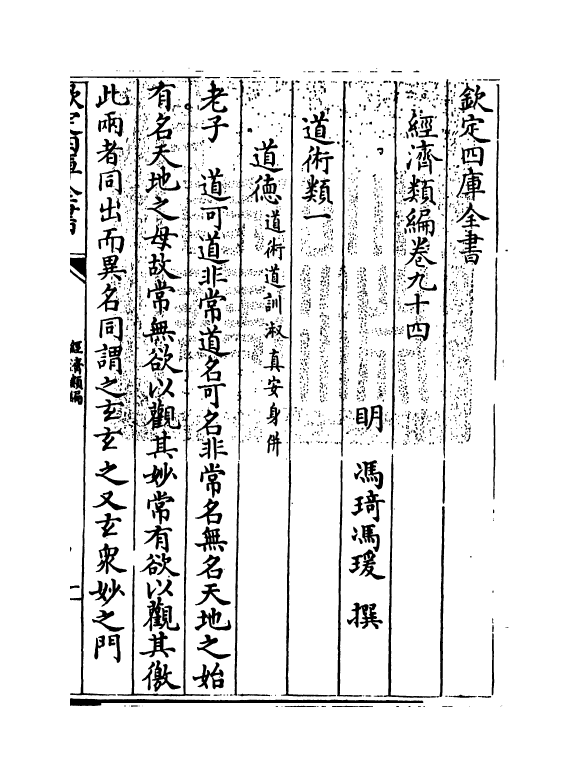 欽定四庫全書
經濟類編卷九十四
明 馮琦馮瑗 撰
道術類一
道徳道術道訓淑真安身附
老子 道可道非常道名可名非常名無名天地之始
有名天地之母故常無欲以觀其妙常有欲以觀其徼
此兩者同出而異名同謂之𤣥𤣥之又𤣥衆妙之門
欽定四庫全書
經濟類編